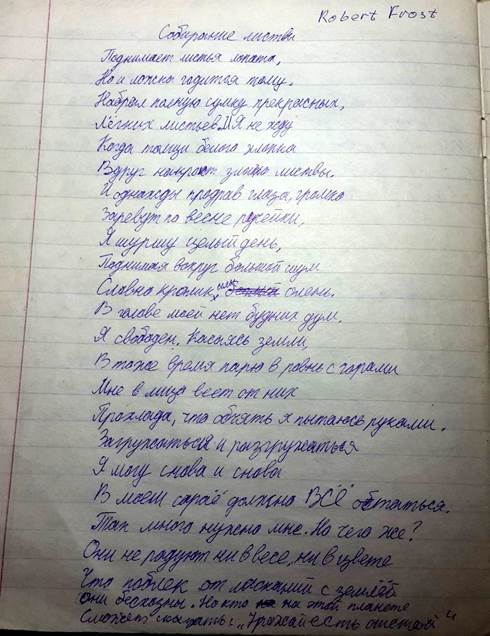 Robert Frost
Собирание листвы
Поднимает листья лопата,
Но и ложка годится тому.
Набрал полную сумку прекрасных,
Лёгких листьев. И Я не жду
Когда толщи белого хлопка
Вдруг накроют злыдни листвы.
И однажды продрав глаза, громко
Заревут по весне
Я шуршу целый день,
Поднимая вокруг большой шум
Словно кролик, олень.
В голове моей нет будних дум.
Я свободен. Касаясь земли
В тоже время парю в ровнь с горами
Мне в лицо веет от них
Прохлада, что обнять я пытаюсь руками.
Загружаться и разгружаться
Я могу снова и снова
В моем сарае должно ВСЁ остаться.
Так много нужно мне. Но чего же?
Они не радуют ни в весе, ни в цвете
Что поблек от ласканий с землёй
Они бесхозны. Но кто на этой планете
Сможет сказать: "Урожай есть